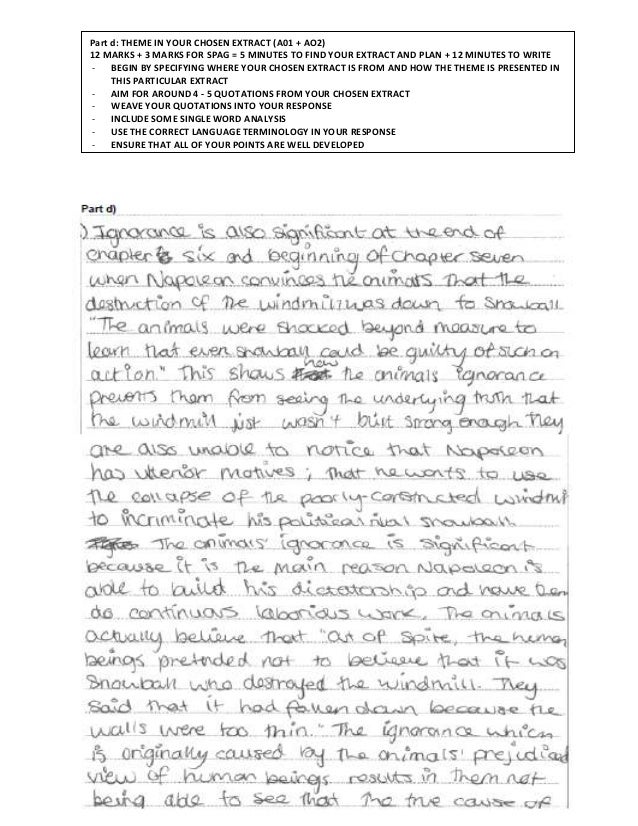 Part d: THEME IN YOUR CHOSEN EXTRACT (A01 + AO2)
12 MARKS + 3 MARKS FOR SPAG = 5 MINUTES TO FIND YOUR EXTRACT AND PLAN + 12 MINUTES TO WRITE
- BEGIN BY SPECIFYING WHERE YOUR CHOSEN EXTRACT IS FROM AND HOW THE THEME IS PRESENTED IN
THIS PARTICULAR EXTRACT
- AIM FOR AROUND 4 - 5 QUOTATIONS FROM YOUR CHOSEN EXTRACT
- WEAVE YOUR QUOTATIONS INTO YOUR RESPONSE
- INCLUDE SOME SINGLE WORD ANALYSIS
- USE THE CORRECT LANGUAGE TERMINOLOGY IN YOUR RESPONSE
- ENSURE THAT ALL OF YOUR POINTS ARE WELL DEVELOPED
Part d)
) Ignorance is also significant at the end of
chapter six and beginning of chapter seven
when Napolean convinces the animals that the
destruction of the windmill was down to Snowball
"The animals were shocked beyond measure to
learn that even snowball could be guilty of such an
action." This shows how the animals ignorance
prevents them from seeing the underlying truth that
the windmill just wasn't built strong enough They
are also unable to notice that Napolean
has ulterior motives; that he wants to use
the collapse of the poorly-constructed windmi
to incriminate his political rival snowball
The animals' ignorance is significant
because it is the main reason Napolean is
able to build his dictatorship and have them
do continuous laborious work. The animals
actually believe that "out of spite, the human
beings pretended not to believe that it was
Snowball who destroyed the windmill. They
said that it had fallen down because the
walls were too thin." The ignorance which
is originally caused by the animals' prejudiced
view of human beings results in them not
being able to see that the true cause of